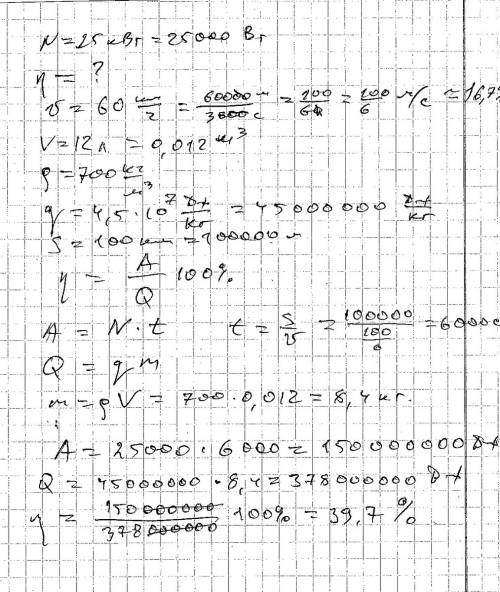 N = 25 кВт = 25000 Вт
η = ?
υ = 60 км/г = 60000 м/3600 с = 100/6 = 100/6 м/с ≈ 16,7
V = 12 л = 0,012 м³
ρ = 700 кг/м³
q = 4,5 · 10⁷ Дж/кг = 45000000 Дж/кг
S = 100 км = 100000 м
η = A/Q 100%
A = N · t t = S/υ = 100000/(100/6) = 6000 с
Q = q m
m = ρ V = 700 · 0,012 = 8,4 кг.
A = 25000 · 6000 = 150 000 000 Дж
Q = 45000000 · 8,4 = 378000000 Дж
η = 150000000/378000000 100% = 39,7 %